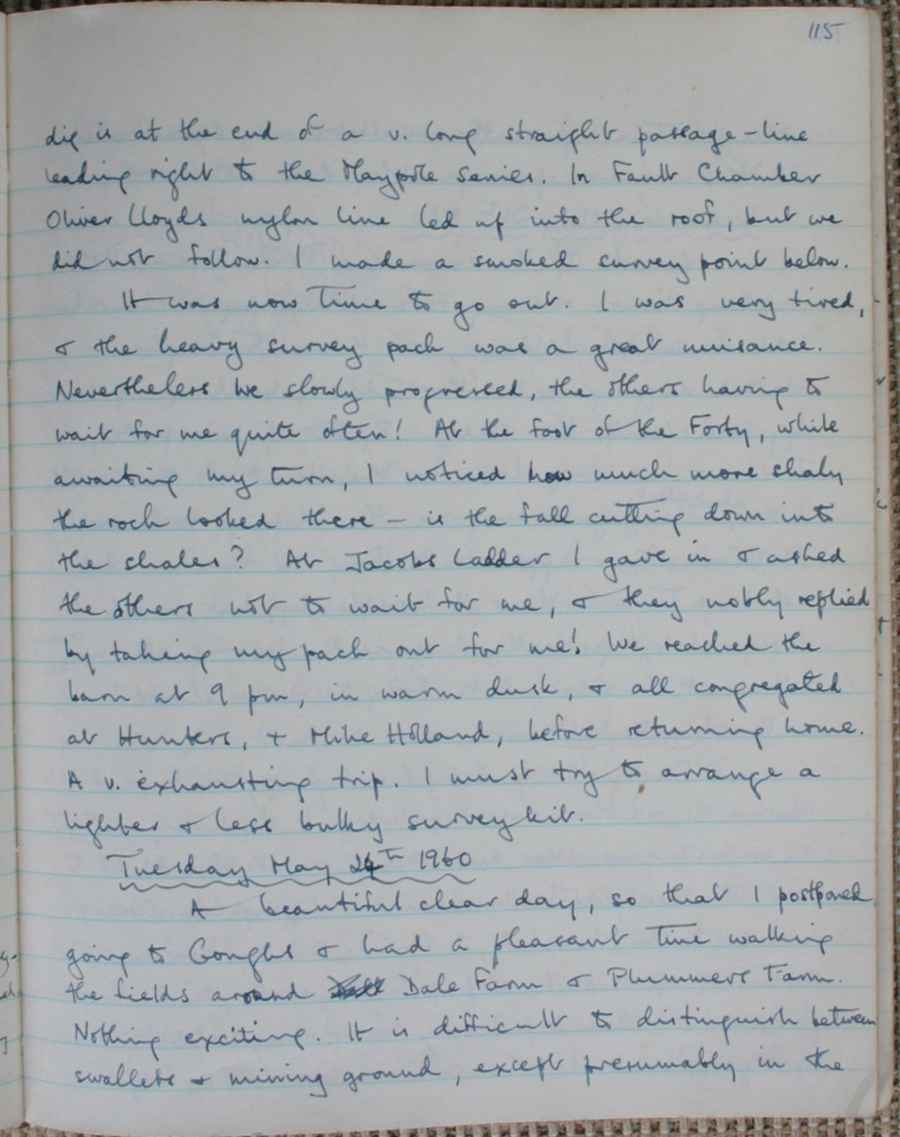 115
dig is at the end of a v. long straight passage-line
leading right to the Maypole Series. In Fault Chamber
Oliver Lloyds nylon line led up into the roof, but we
did not follow. I made a smoked survey point below.
It was now time to go out. I was very tired,
& the heavy survey pack was a great nuisance.
Nevertheless we slowly progressed, the others having to
wait for me quite often! At the foot of the Forty, while
awaiting my turn, I noticed how much more shaly
the rock looked there – is the fall cutting down into
the shales? At Jacobs Ladder I gave in & asked
the others not to wait for me, & they nobly replied
by taking my pack out for me! We reached the
barn at 9 pm, in warm dusk, & all congregated
at Hunters, + Mike Holland, before returning home.
A v. exhausting trip. I must try to arrange a
lighter & less bulky survey kit.
Tuesday May 24th 1960
A beautiful clear day, so that I postponed
going to Goughs & had a pleasant time walking
the fields around Dale Farm & Plummers Farm.
Nothing exciting. It is difficult to distinguish between
swallets & mining ground, except presumably in the